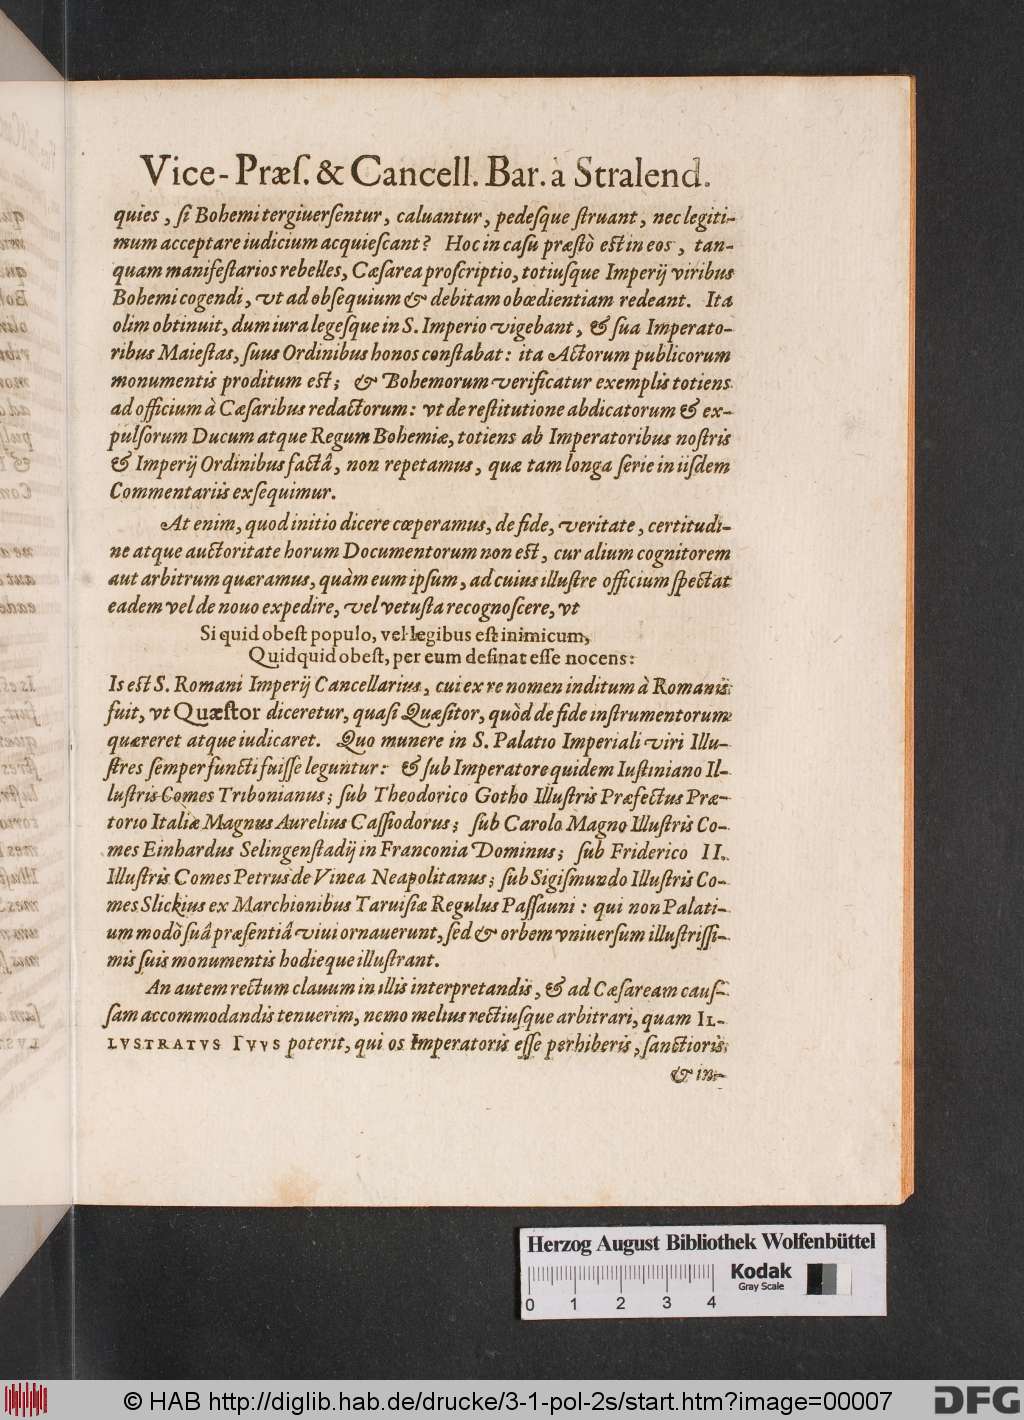 Vice-Præſ. & Cancell. Bar. à Stralend.
quies, ſi Bohemi tergiuerſentur, caluantur, pedeſque ſtruant, nec legiti-
mum acceptare iudicium acquieſcant? Hoc in caſu præſtò eſt in eos, tan-
quam manifeſtarios rebelles, Cæſarea proſcriptio, totiuſque Imperij viribus
Bohemi cogendi, vt ad obſequium & debitam obœdientiam redeant. Ita
olim obtinuit, dum iura legeſque in S. Imperio vigebant, & ſua Imperato-
ribus Maieſtas, ſuus Ordinibus honos conſtabat: ita Actorum publicorum
monumentis proditum eſt; & Bohemorum verificatur exemplis totiens
ad officium à Cæſaribus redactorum: vt de reſtitutione abdicatorum & ex-
pulſorum Ducum atque Regum Bohemiæ, totiens ab Imperatoribus noſtris
& Imperij Ordinibus factâ, non repetamus, quæ tam longa ſerie in iiſdem
Commentariis exſequimur.
At enim, quod initio dicere cœperamus, de fide, veritate, certitudi-
ne atque auctoritate horum Documentorum non eſt, cur alium cognitorem
aut arbitrum quæramus, quàm eum ipſum, ad cuius illuſtre officium ſpectat
eadem vel de nouo expedire, vel vetuſta recognoſcere, vt
Si quid obeſt populo, vel legibus eſt inimicum,
Quidquid obeſt, per eum deſinat eſſe nocens:
Is eſt S. Romani Imperij Cancellarius, cui ex re nomen inditum à Romanis
fuit, vt Quæſtor diceretur, quaſi Quæſitor, quòd de fide inſtrumentorum
quæreret atque iudicaret. Quo munere in S. Palatio Imperiali viri Illu-
ſtres ſemper functi fuiſſe leguntur: & ſub Imperatore quidem Iuſtiniano Il-
luſtris Comes Tribonianus; ſub Theodorico Gotho Illuſtris Præfectus Præ-
torio Italiæ Magnus Aurelius Caſſiodorus; ſub Carolo Magno Illuſtris Co-
mes Einhardus Selingenſtadij in Franconia Dominus; ſub Friderico II.
Illuſtris Comes Petrus de Vinea Neapolitanus; ſub Sigiſmundo Illuſtris Co-
mes Slickius ex Marchionibus Taruiſiæ Regulus Paſſauni: qui non Palati-
um modò ſuâ præſentiâ viui ornauerunt, ſed & orbem vniuerſum illuſtriſſi-
mis ſuis monumentis hodieque illuſtrant.
An autem rectum clauum in illis interpretandis, & ad Cæſaream cauſ-
ſam accommodandis tenuerim, nemo melius rectiuſque arbitrari, quam IL-
LVSTRATVS TVVS poterit, qui os Imperatoris eſſe perhiberis, ſanctioris
& in-
Herzog August Bibliothek Wolfenbüttel
Kodak
Gray Scale
0 1 2 3 4
© HAB http://diglib.hab.de/drucke/3-1-pol-2s/start.htm?image=00007
DFG